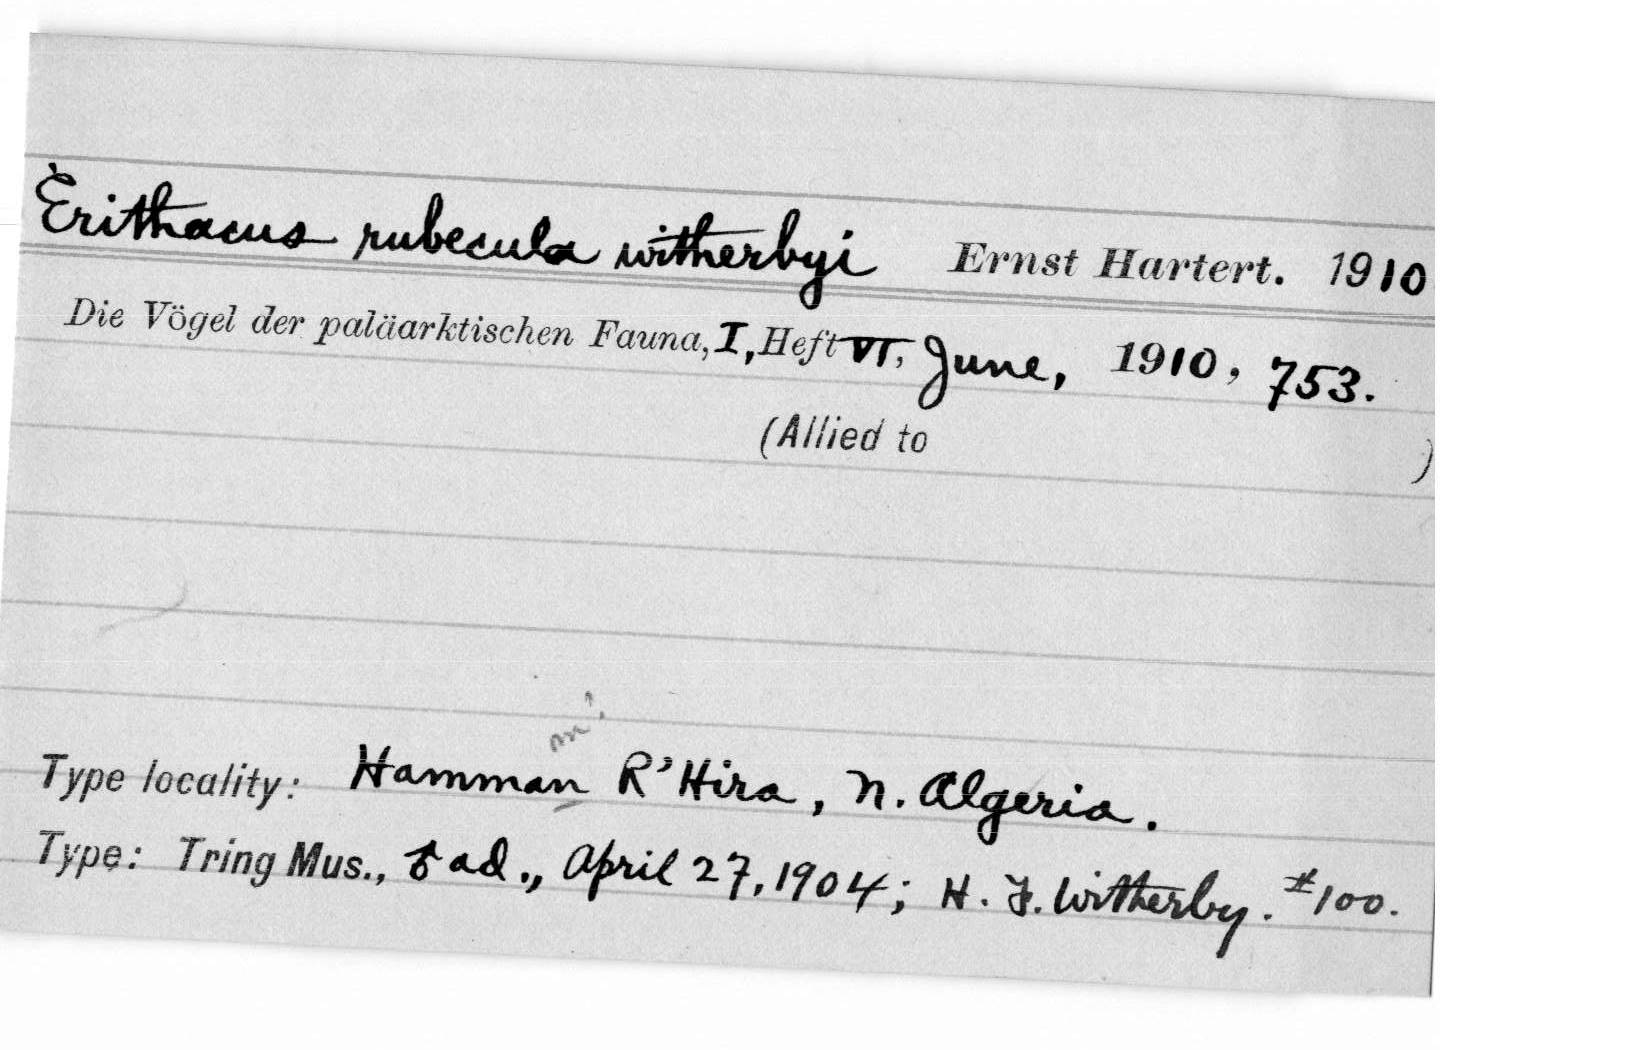 Erithacus rubecula witherbyi Ernst Hartert. 1910
Die Vögel der paläarktischen Fauna, I, Heft VI, June, 1910, 753.
(Allied to )
m!
Type locality: Hamman R'Hira, N. Algeria.
Type: Tring Mus., ♂ ad., April 27, 1904; H. F. Witherby. #100.